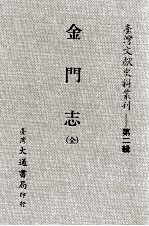 臺灣文獻史料叢刊——第二輯
金門志
(全)
臺灣大通書局印行